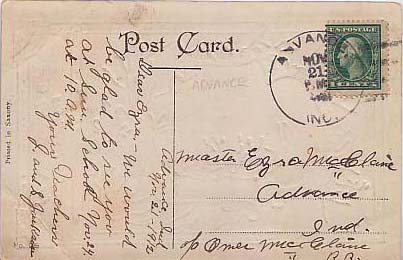 Post Card.
ADVANCE
Advance, Ind
Nov. 21-1912
Dear Ezra:- We would
be glad to see you
at Sun. School Nov. 24
at 10 A.M.
Your Teacher
Printed in Saxony
ADVANCE
NOV
21
IND.
U.S. POSTAGE
Master Ezra McClaine
Advance
Ind.
c/o Omer McClaine